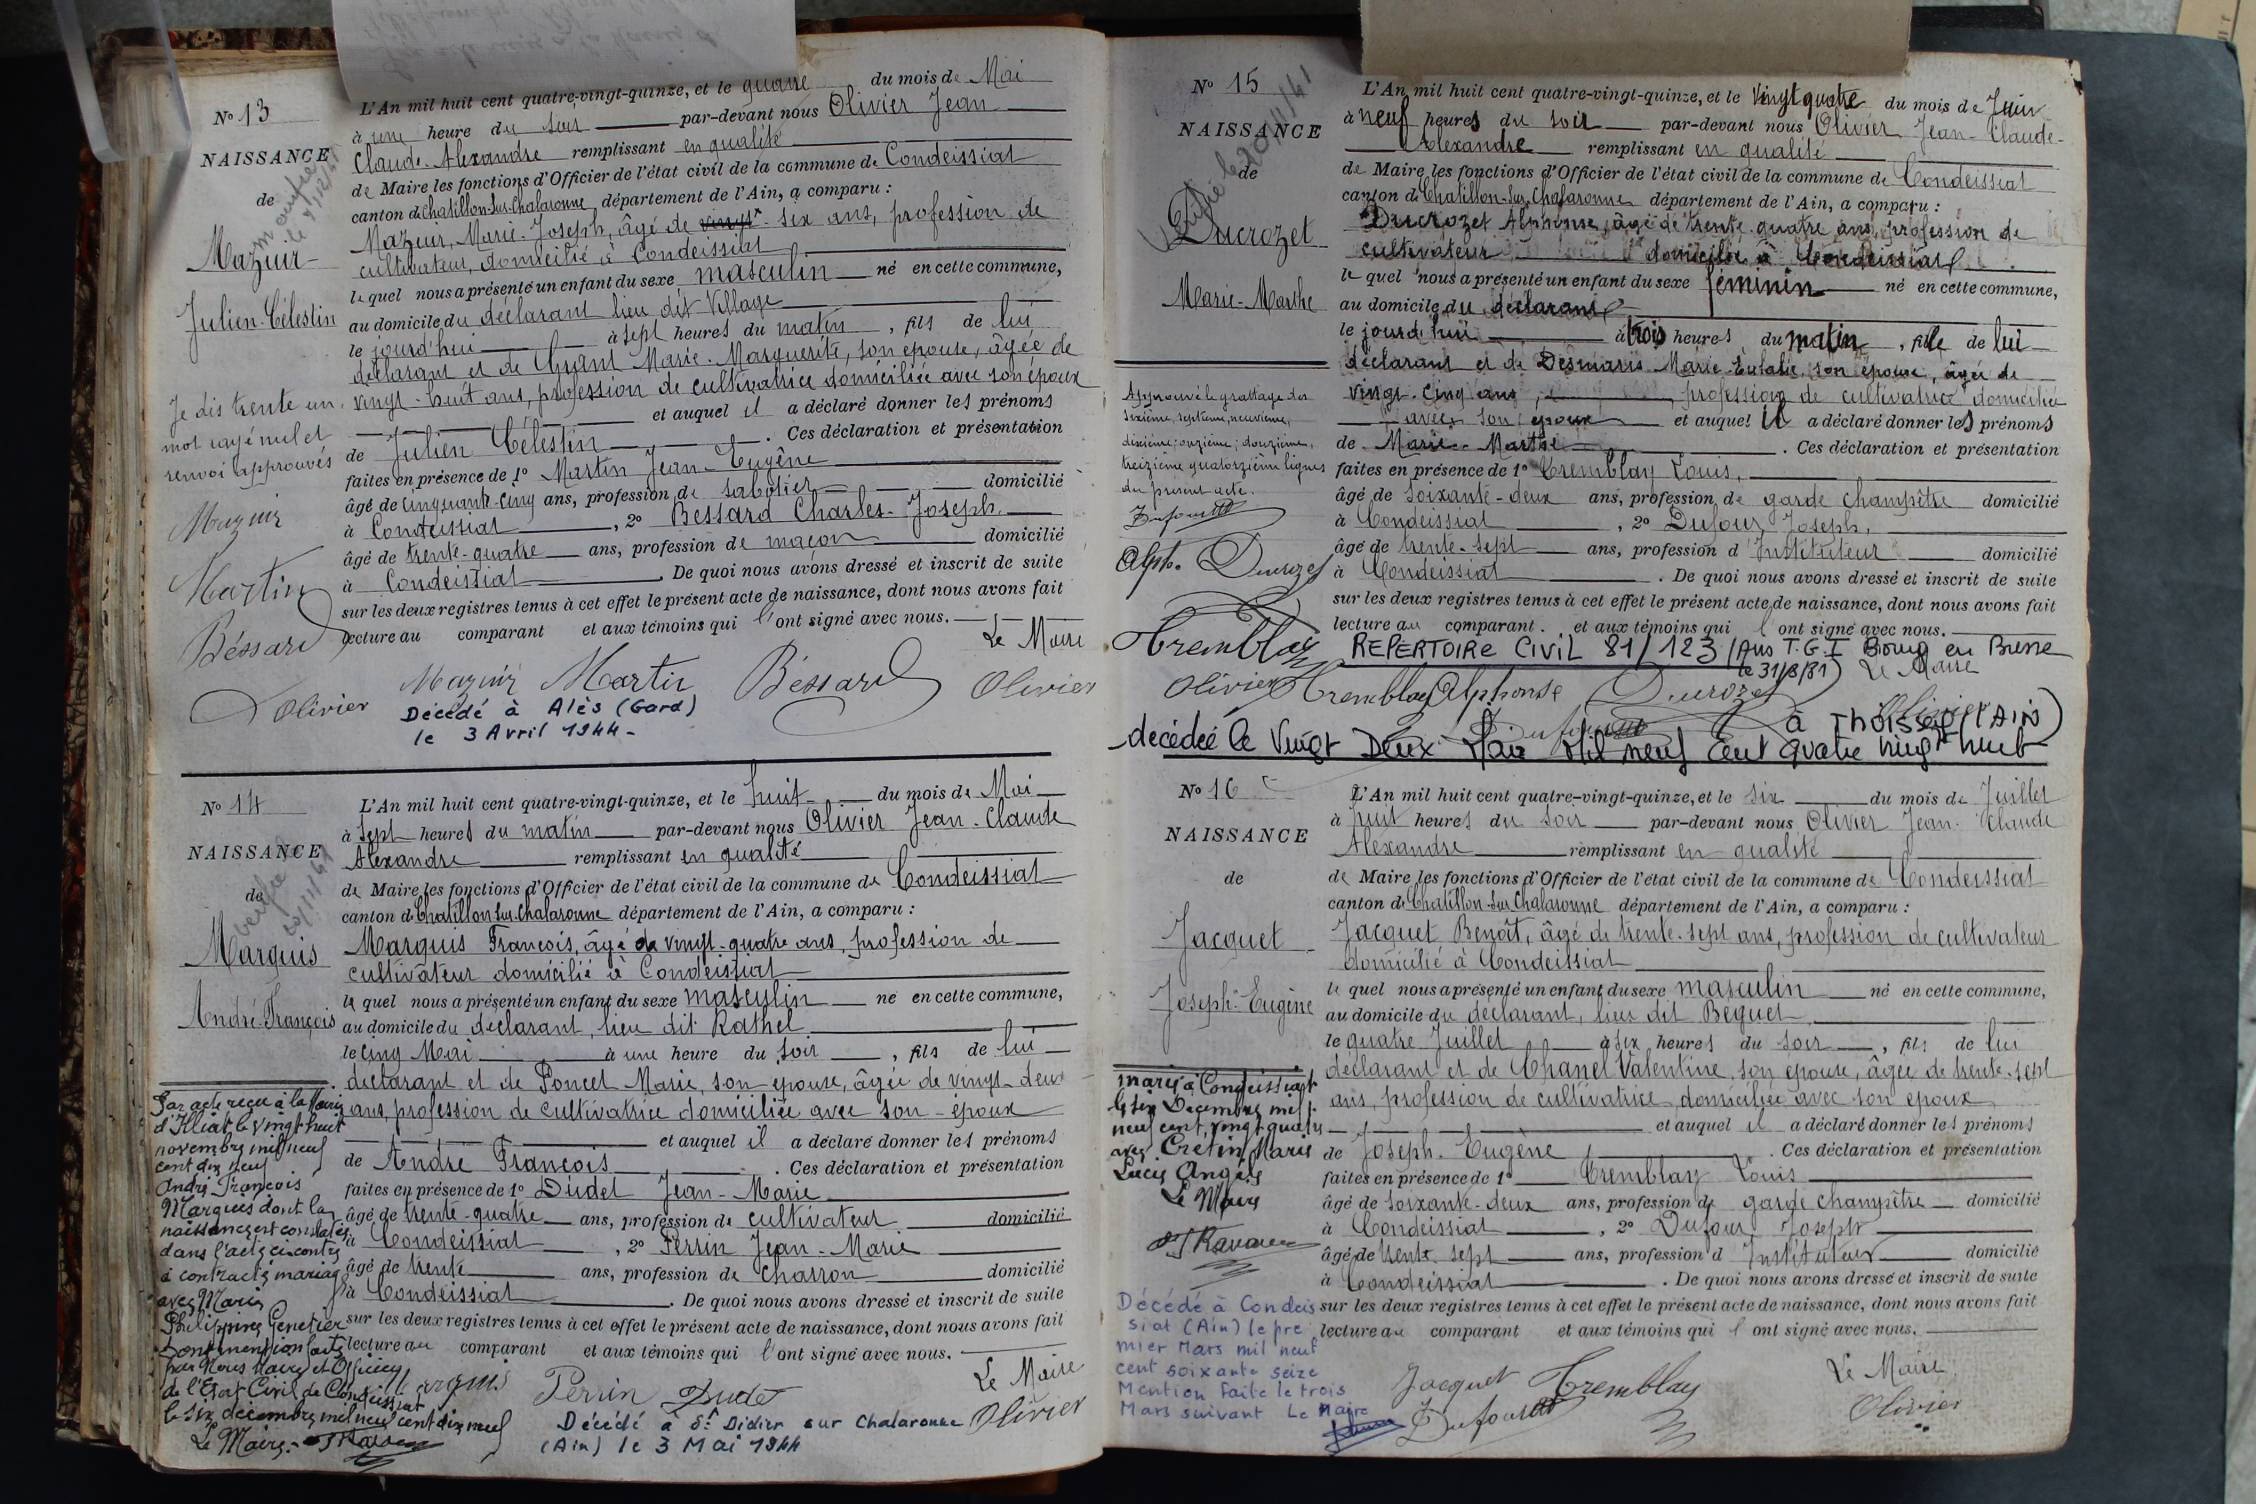 No 13
NAISSANCE
de
Mazuir
Julien-Célestin
Je dis trente un,
mot rayé nul et
renvoi approuvés
Mazuir
Martin
Béssard
Olivier
L'An mil huit cent quatre-vingt-quinze, et le quatre du mois de Mai
à une heure du soir par-devant nous Olivier Jean
Claude-Alexandre remplissant en qualité
de Maire les fonctions d'Officier de l'état civil de la commune de Condeissiat
canton de Chatillon-sur-Chalaronne, département de l'Ain, a comparu :
Mazuir, Marie-Joseph, âgé de vingt-six ans, profession de
cultivateur, domicilié à Condeissiat
le quel nous a présenté un enfant du sexe masculin né en cette commune,
au domicile du déclarant lieu dit Village
le jourd'hui à sept heures du matin, fils de lui
déclarant et de Marie-Marguerite, son épouse, âgée de
vingt-huit ans, profession de cultivatrice domiciliée avec son époux
et auquel il a déclaré donner les prénoms
de Julien Célestin. Ces déclaration et présentation
faites en présence de 1° Martin Jean-Eugène
âgé de cinquante-cinq ans, profession de sabotier domicilié
à Condeissiat, 2° Bessard Charles-Joseph
âgé de trente-quatre ans, profession de maçon domicilié
à Condeissiat. De quoi nous avons dressé et inscrit de suite
sur les deux registres tenus à cet effet le présent acte de naissance, dont nous avons fait
lecture au comparant et aux témoins qui l'ont signé avec nous.
Le Maire
Mazuir Martin Béssard Olivier
Décédé à Alès (Gard)
le 3 Avril 1944-
No 14
NAISSANCE
de
Marquis
André-François
Par acte reçu à la Mairie
d'Illiat, le vingt huit
novembre mil neuf
cent dix neuf
André François
Marquis dont la
naissance est constatée
dans l'acte ci-contre
a contracté mariage
avec Marie
Philippine Genetier
Dont mention faite
par Nous Maire et Officier
de l'Etat Civil de Condeissiat
le six décembre mil neuf cent dix neuf
Le Maire.
L'An mil huit cent quatre-vingt-quinze, et le huit du mois de Mai
à sept heures du matin par-devant nous Olivier Jean-Claude
Alexandre remplissant en qualité
de Maire les fonctions d'Officier de l'état civil de la commune de Condeissiat
canton de Chatillon-sur-Chalaronne département de l'Ain, a comparu :
Marquis François, âgé de vingt-quatre ans, profession de
cultivateur domicilié à Condeissiat
le quel nous a présenté un enfant du sexe masculin né en cette commune,
au domicile du déclarant, lieu dit Rathel
le cinq Mai à une heure du soir, fils de lui
déclarant et de Poncet Marie, son épouse, âgée de vingt-deux
ans, profession de cultivatrice domiciliée avec son époux
et auquel il a déclaré donner les prénoms
de André François. Ces déclaration et présentation
faites en présence de 1° Dudet Jean-Marie
âgé de trente-quatre ans, profession de cultivateur domicilié
à Condeissiat, 2° Perrin Jean-Marie
âgé de trente ans, profession de charron domicilié
à Condeissiat. De quoi nous avons dressé et inscrit de suite
sur les deux registres tenus à cet effet le présent acte de naissance, dont nous avons fait
lecture au comparant et aux témoins qui l'ont signé avec nous.
Le Maire
Perrin Dudet Olivier
Décédé à St Didier sur Chalaronne
(Ain) le 3 Mai 1944
No 15
NAISSANCE
de
Ducrozet
Marie-Marthe
Approuvé le grattage des
sixième, septième, neuvième,
dixième, onzième, douzième,
treizième quatorzième lignes
du présent acte.
Dufour
Alph. Ducrozet
Tremblay
Olivier
L'An mil huit cent quatre-vingt-quinze, et le vingt quatre du mois de Juin
à neuf heures du soir par-devant nous Olivier Jean-Claude-
Alexandre remplissant en qualité
de Maire les fonctions d'Officier de l'état civil de la commune de Condeissiat
canton de Chatillon-sur-Chalaronne département de l'Ain, a comparu :
Ducrozet Alphonse, âgé de trente-quatre ans, profession de
cultivateur domicilié à Condeissiat
le quel nous a présenté un enfant du sexe féminin né en cette commune,
au domicile du déclarant
le jourd'hui à trois heures du matin, fille de lui
déclarant et de Desmaris Marie-Eulalie, son épouse, âgée de
vingt-cinq ans, profession de cultivatrice domiciliée
avec son époux et auquel il a déclaré donner les prénoms
de Marie-Marthe. Ces déclaration et présentation
faites en présence de 1° Tremblay Louis,
âgé de soixante-deux ans, profession de garde champêtre domicilié
à Condeissiat, 2° Dufour Joseph,
âgé de trente-sept ans, profession d'Instituteur domicilié
à Condeissiat. De quoi nous avons dressé et inscrit de suite
sur les deux registres tenus à cet effet le présent acte de naissance, dont nous avons fait
lecture au comparant. et aux témoins qui l'ont signé avec nous.
REPERTOIRE CIVIL 81/123 T.G.I Bourg en Bresse
le 31/8/81) Le Maire
Tremblay Alphonse Ducrozet
Dufour Olivier
à THOISSEY (AIN)
décédée le Vingt Deux Mil neuf Cent quatre vingt huit
No 16
NAISSANCE
de
Jacquet
Joseph-Eugène
marié à Condeissiat
le six Décembre mil
neuf cent, vingt quatre
avec Cretin Marie
Lucie Angèle
Le Maire
Décédé à Condeis
siat (Ain) le pre
mier Mars mil neuf
cent soixante seize
Mention faite le trois
Mars suivant Le Maire
L'An mil huit cent quatre-vingt-quinze, et le six du mois de Juillet
à huit heures du soir par-devant nous Olivier Jean-Claude
Alexandre remplissant en qualité
de Maire les fonctions d'Officier de l'état civil de la commune de Condeissiat
canton de Chatillon-sur-Chalaronne département de l'Ain, a comparu :
Jacquet Benoît, âgé de trente-sept ans, profession de cultivateur
domicilié à Condeissiat
le quel nous a présenté un enfant du sexe masculin né en cette commune,
au domicile du déclarant, lieu dit Bequet
le quatre Juillet à six heures du soir, fils de lui
déclarant et de Chanel Valentine, son épouse, âgée de trente-sept
ans, profession de cultivatrice, domiciliée avec son époux
et auquel il a déclaré donner les prénoms
de Joseph-Eugène. Ces déclaration et présentation
faites en présence de 1° Tremblay Louis
âgé de soixante-deux ans, profession de garde champêtre domicilié
à Condeissiat, 2° Dufour Joseph
âgé de trente sept ans, profession d'Instituteur domicilié
à Condeissiat. De quoi nous avons dressé et inscrit de suite
sur les deux registres tenus à cet effet le présent acte de naissance, dont nous avons fait
lecture au comparant et aux témoins qui l'ont signé avec nous.
Jacquet Tremblay Le Maire
Dufour Olivier